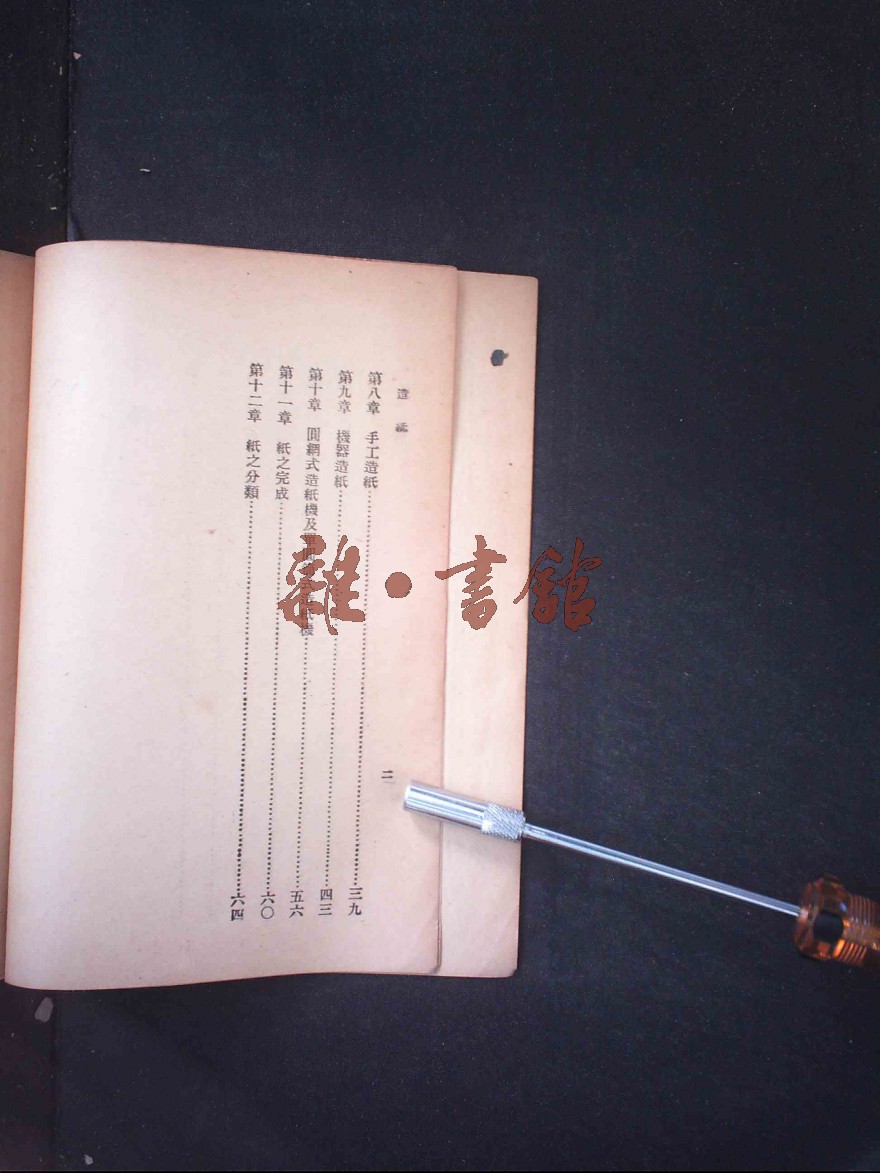 造紙
二
第八章 手工造紙……三九
第九章 機器造紙……四三
第十章 圓網式造紙機及機……五六
第十一章 紙之完成……六〇
第十二章 紙之分類……六四
雜•書館